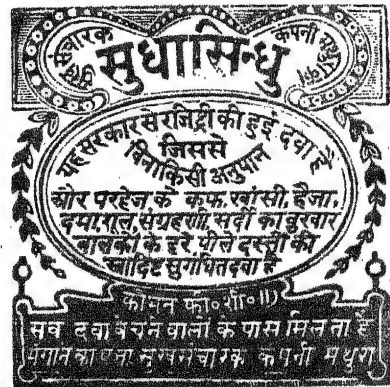 सुख संचारक
सुधासिन्धु
कंपनी मथुरा का
यह सरकार से रजिट्री की हुई दवा है
जिससे
बिना किसी अनुपान
और परहेज के कफ, खांसी, हैजा,
दमा, शूल, संग्रहणी, सर्दी का बुखार
बालकों के हरे, पीले दस्तों की
स्वादिष्ट सुगंधित दवा है
कीमत फी॰ शी॰ ॥)
सब दवा बेचने वालों के पास मिलता है
मंगाने का पता सुख संचारक कंपनी मथुरा